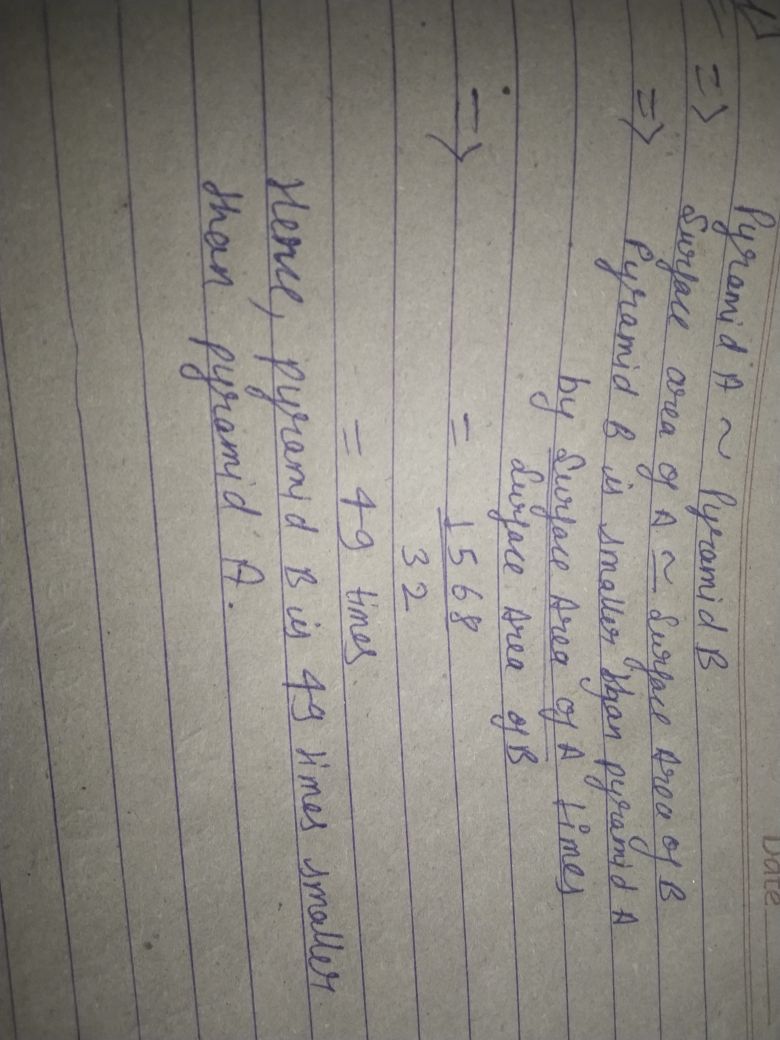 Date
=> Pyramid A ~ Pyramid B
Surface area of A ≃ Surface Area of B
=> Pyramid B is smaller than pyramid A
by Surface Area of A times
Surface Area of B
=> = 1568
32
= 49 times
Hence, pyramid B is 49 times smaller
than pyramid A.